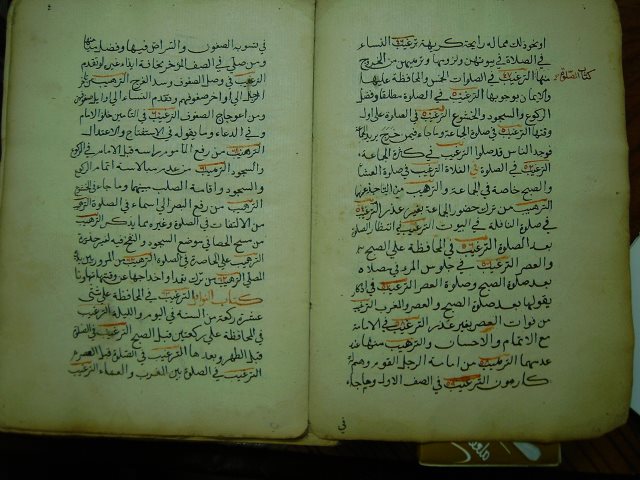 او نحو ذلك مما له رايحة كريهة ترغيب النساء
في الصلاة في بيوتهن ولزومها وترهيبهن من الخروج
منها الترغيب في الصلوات الخمس والمحافظة عليها
كتاب الصلوة
والايمان بوجوبها الترغيب في الصلوة مطلقا وفضل
الركوع والسجود والخشوع الترغيب في الصلوة على اول
وقتها الترغيب في صلوة الجماعة وما جاء فيمن خرج يريد
فوجد الناس قد صلوا الترغيب في كثرة الجماعة
الترغيب في الصلوة في الفلاة الترغيب في صلوة العشا
والصبح خاصة في الجماعة والترهيب من التاخر عنها
الترهيب من ترك حضور الجماعة بغير عذر الترغيب
في صلوة النافلة في البيوت الترغيب في انتظار الصلوة
بعد الصلوة الترغيب في المحافظة على الصبح
والعصر الترغيب في جلوس المرء في مصلاه
بعد صلوة الصبح وصلوة العصر الترغيب في اذكار
يقولها بعد صلوة الصبح والعصر والمغرب الترهيب
من فوات العصر بغير عذر الترغيب في الامامة
مع الاتمام والاحسان والترهيب منها عند
عدمهما الترهيب من امامة الرجل القوم وهم له
كارهون الترغيب في الصف الاول وما جاء
في
في تسوية الصفوف والتراص فيها وفضل ميامنها
ومن صلى في الصف المؤخر مخافة ايذاء غيره لو تقدم
الترغيب في وصل الصفوف وسد الفرج الترهيب من تاخر
الرجال الى اواخر صفوفهم وتقدم النساء الى اوايل صفوفهن
ومن اعوجاج الصفوف الترغيب في التامين خلف الامام
وفي الدعاء وما يقوله في الاستفتاح والاعتدال
الترهيب من رفع الماموم راسه قبل الامام في الركوع
والسجود الترهيب من عدم اتمام الركوع
والسجود واقامة الصلب بينهما وما جاء في الخشوع
الترهيب من رفع البصر الى السماء في الصلوة الترهيب
من الالتفات في الصلوة وغيره مما يذكر الترهيب
من مسح الحصى في موضع السجود والنفخ فيه لغير ضرورة
الترهيب على الخاصرة في الصلوة الترهيب من المرور بين يدي
المصلي الترهيب من ترك الصلوة تعمدا واخراجها عن وقتها تهاونا
كتاب النوافل الترغيب في المحافظة على ثنتي
عشرة ركعة من السنة في اليوم والليلة الترغيب
في المحافظة على ركعتين قبل الصبح الترغيب في الصلوة
قبل الظهر وبعدها الترغيب في الصلوة قبل العصر
الترغيب في الصلوة بين المغرب والعشاء الترغيب